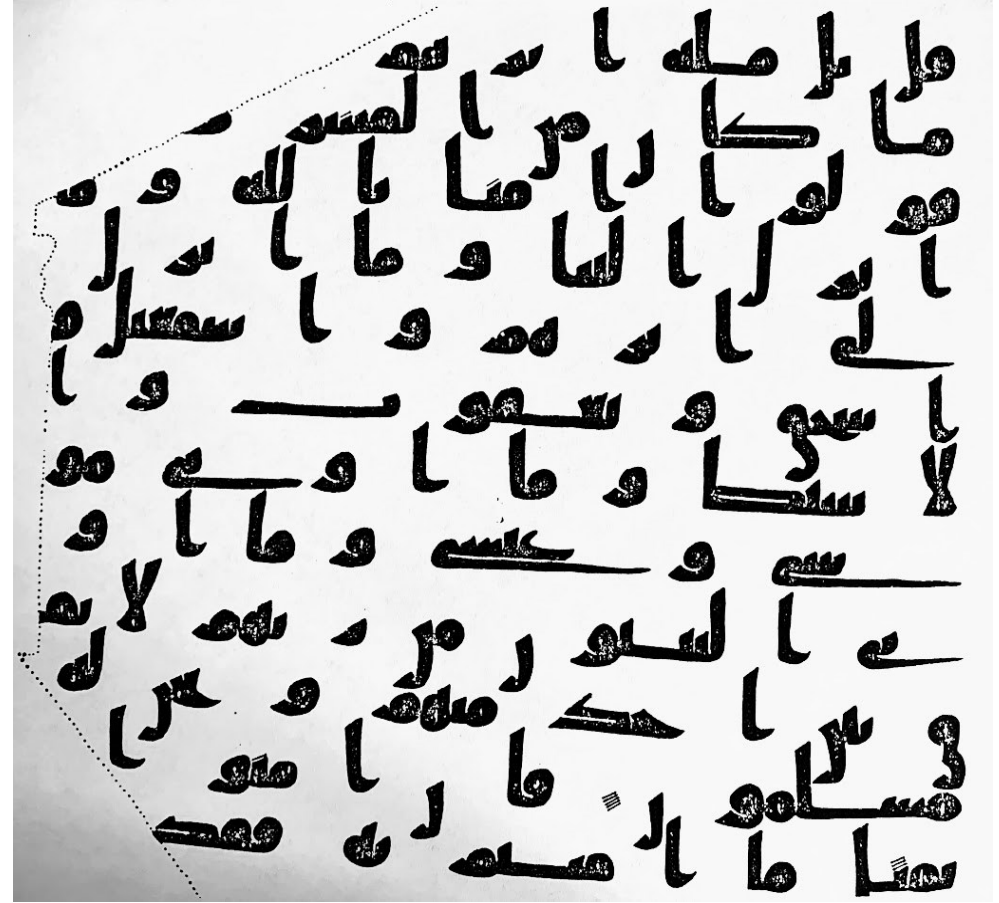 قل بل مله ابرهم
ما كان من المشركين
قولوا امنا بالله و م
ا انزل الينا و ما انزل
الى ابرهم و اسمعيل و
اسحق و يعقوب و ا
لاسبط و ما اوتى مو
سى و عيسى و ما او
تى النبيون من ربهم لا نف
رق بين احد منهم و نحن له
مسلمون فان امنوا
بمثل ما امنتم به فقد